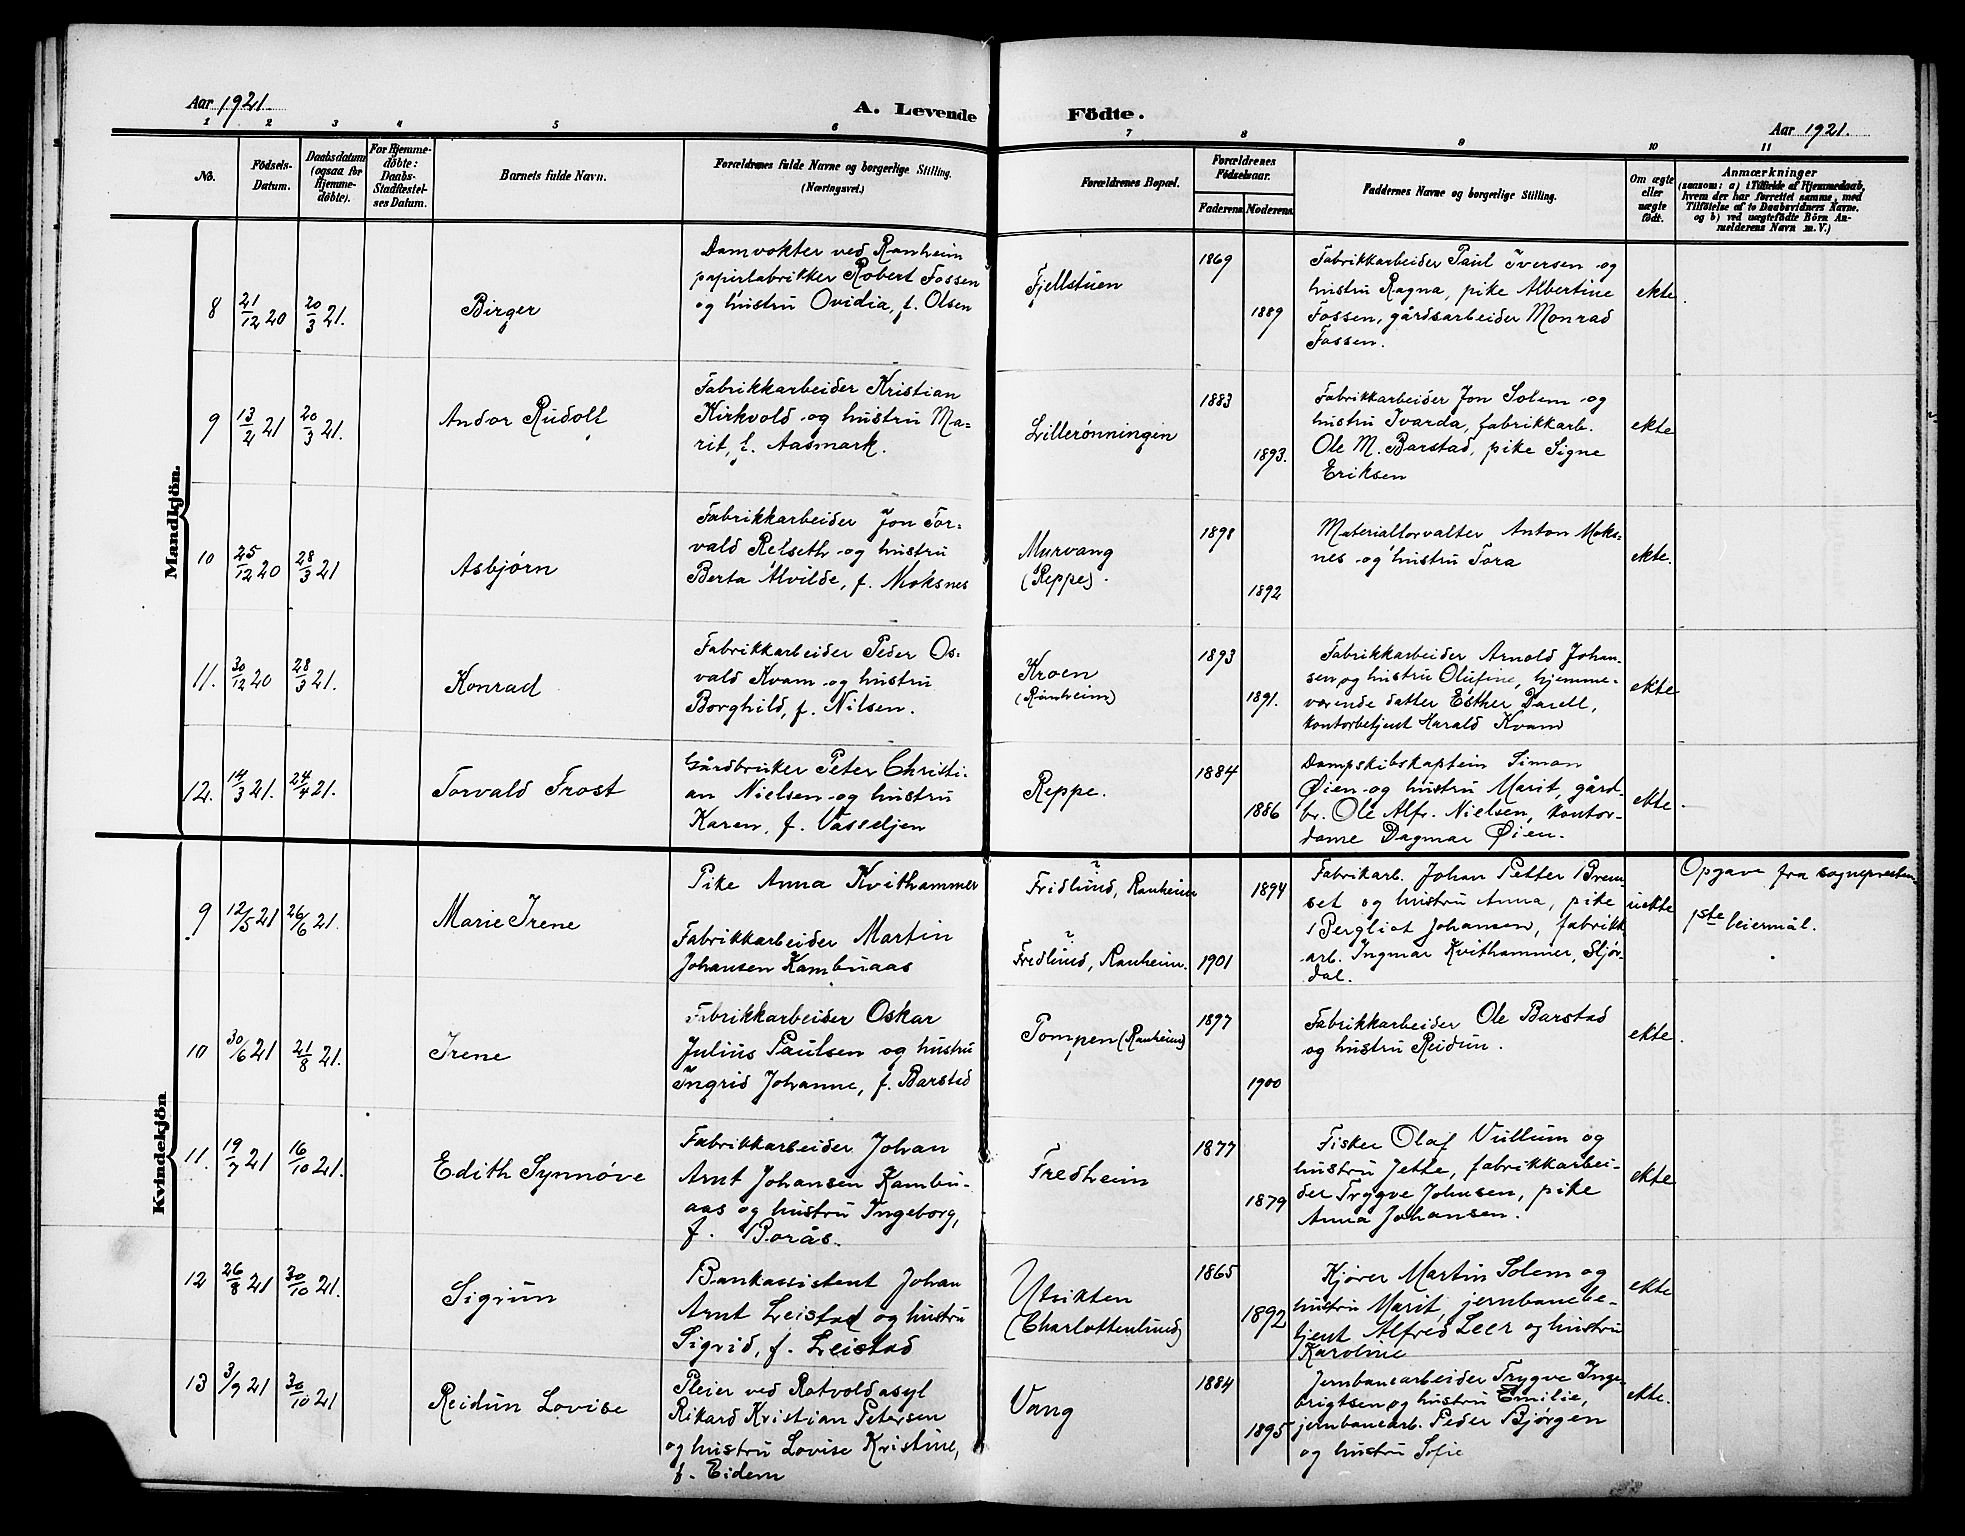 Aar 1921.
A. Levende Födte.
Aar 1921.
1 2 3 4 5 6 7 8 9 10 11
No.
Födsels-
Datum.
Daabsdatum
(ogsaa for
Hjemme-
döbte).
For Hjemme-
döbte:
Daabs-
Stadfæstel-
ses Datum.
Barnets fulde Navn.
Forældrenes fulde Navne og borgerlige Stilling.
(Næringsvei.)
Forældrenes Bopæl.
Forældrenes
Födselsaar.
Faderens. Moderens.
Faddernes Navne og borgerlige Stilling.
Om ægte
eller
uægte
födt.
Anmærkninger
(saasom: a) i Tilfælde af Hjemmedaab,
hvem der har forrettet samme, med
Tilföielse af to Daabsvidners Navne.
og b) ved uægtefödte Börn An-
melderens Navn m. V.)
Mandkjön.
8 21/12 20 20/3 21. Birger
Damvokter ved Ranheim
papirfabrikker Robert Fossen
og hustru Ovidia, f. Olsen
Fjellstuen
1869
1889
Fabrikkarbeider Paul Iversen og
hustru Ragna, pike Albertine
Fossen, gårdsarbeider Monrad
Fossen.
ekte.
9 13/2 21 20/3 21. Andor Rudolf
Fabrikkarbeider Kristian
Kirkvold og hustru Ma-
rit, f. Aasmark.
Lillerønningen
1883
1893.
Fabrikkarbeider Jon Solem og
hustru Ivarda, fabrikkarb.
Ole M. Barstad, pike Signe
Eriksen
ekte
10 25/12 20 28/3 21 Asbjørn
Fabrikkarbeider Jon Tor-
vald Relseth og hustru
Berta Alvilde, f. Moksnes
Murvang
(Reppe).
1898
1892
Materialforvalter Anton Moks-
nes og hustru Tora
ekte.
11. 30/12 20 28/3 21. Konrad
Fabrikkarbeider Peder Os-
vald Kvam og hustru
Borghild, f. Nilsen.
Kroen
(Ranheim)
1893
1891.
Fabrikkarbeider Arnold Johan-
sen og hustru Olufine, hjemme-
værende datter Esther Darell,
kontorbetjent Harald Kvam
ekte
12. 14/3 21. 24/4 21. Torvald Frost
Gårdbruker Peter Christi-
an Nielsen og hustru
Karen, f. Vasseljen
Reppe.
1884
1886
Dampskibskaptein Simon
Øien og hustru Marit, gård-
br. Ole Alfr. Nielsen, kontor-
dame Dagmar Øien.
ekte.
Kvindekjön
9 12/5 21 26/6 21. Marie Irene
Pike Anna Kvithammer
Fabrikkarbeider Martin
Johansen Kambuaas
Fridlund, Ranheim
Fredlund, Ranheim.
1894
1901
Fabrikarb. Johan Petter Brem-
set og hustru Anna, pike
Bergliot Johansen, fabrikk
arb. Ingmar Kvithammer, Stjør-
dal.
uekte
Opgave fra sognepresten.
1ste leiermål.
10 30/6 21 21/8 21. Irene
Fabrikkarbeider Oskar
Julius Paulsen og hustru
Ingrid Johanne, f. Barstad
Pompen (Ranheim)
1897
1900
Fabrikkarbeider Ole Barstad
og hustru Reidun.
ekte.
11. 19/7 21 16/10 21. Edith Synnøve
Fabrikkarbeider Johan
Arnt Johansen Kambu-
aas og hustru Ingeborg,
f. Borås.
Fredheim
1877
1879
Fisker Olaf Vullum og
hustru Jette, fabrikkarbei-
der Trygve Johnsen, pike
Anna Johansen.
ekte
12 26/8 21 30/10 21. Sigrun
Bankassistent Johan
Arnt Leistad og hustru
Sigrid, f. Leistad
Utsikten
(Charlottenlund)
1865
1892
Kjører Martin Solem og
hustru Marit, jernbanebe-
tjent Alfred Leer og hustru
Karoline
ekte
13 3/9 21 30/10 21 Reidun Lovise
Pleier ved Rotvoldasyl
Rikard Kristian Petersen
og hustru Lovise Kristine,
f. Eidem
Vang
1884
1895
Jernbanearbeider Trygve Inge-
brigtsen og hustru Emilie,
jernbanearb. Peder Bjørgen
og hustru Sofie
ekte.